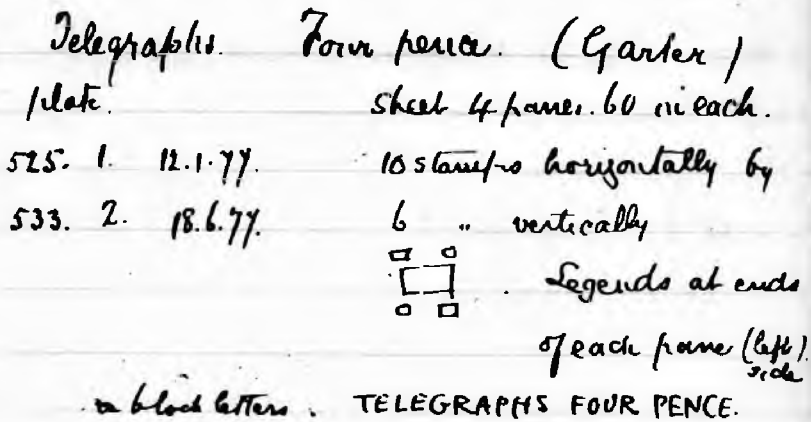 Telegraphs. Four pence. (Garter)
plate. sheet 4 panes. 60 in each.
525. 1. 12.1.77. 10 stamps horizontally by
533. 2. 18.6.77. 6 " vertically
Legends at ends
of each pane (left)
side
in block letters. TELEGRAPHS FOUR PENCE.